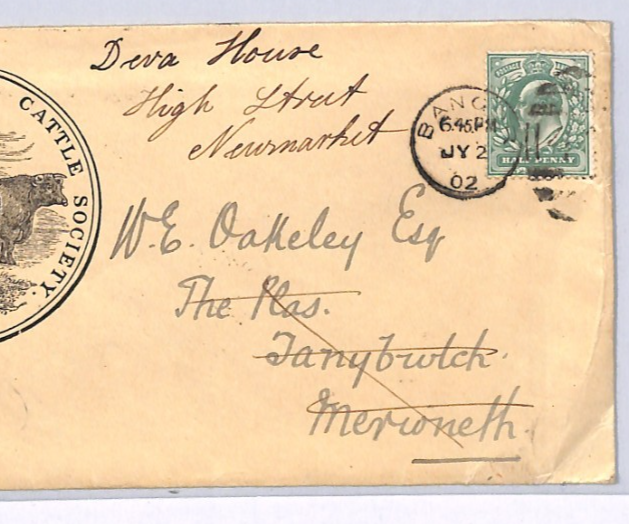 CATTLE SOCIETY.
Deva House
High Street
Newmarket
POSTAGE
HALFPENNY
BANG
6.45PM
JY 2
02
W.E. Oakeley Esq
The Plas.
Tanybwlch.
Merioneth.